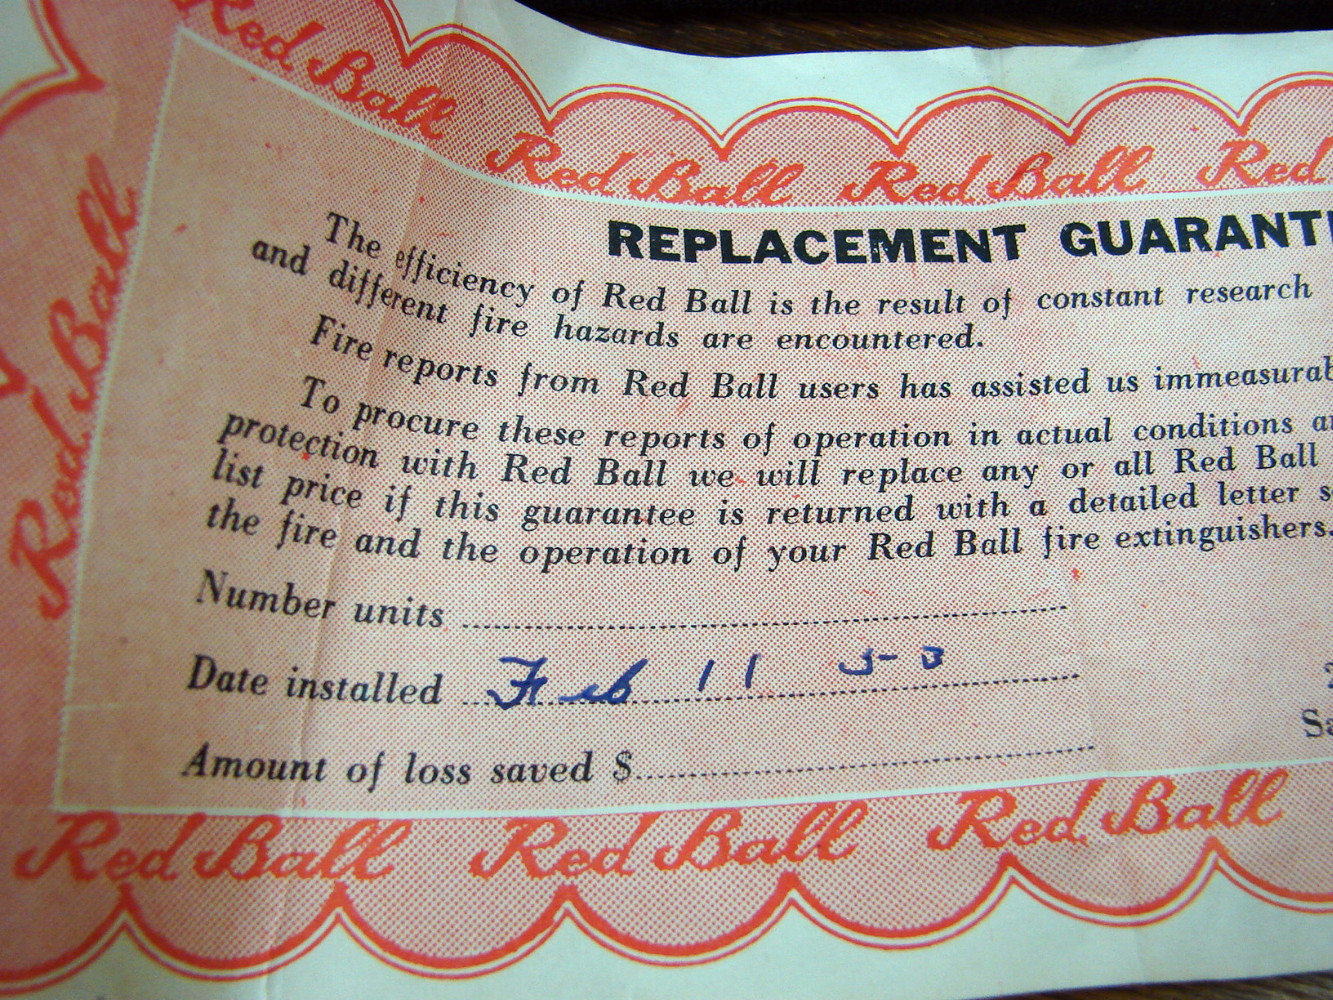 Red Ball Red Ball Red Ball Red
Red Ball
REPLACEMENT
The efficiency of Red Ball is the result of constant research
and different fire hazards are encountered.
Fire reports from Red Ball users has assisted us
To procure these reports of operation in actual conditions
protection with Red Ball we will replace any or all Red Ball
list price if this guarantee is returned with a detailed letter
the fire and the operation of your Red Ball fire extinguishers.
Number units
Date installed Feb 11 53
Amount of loss saved $
Red Ball Red Ball Red Ball